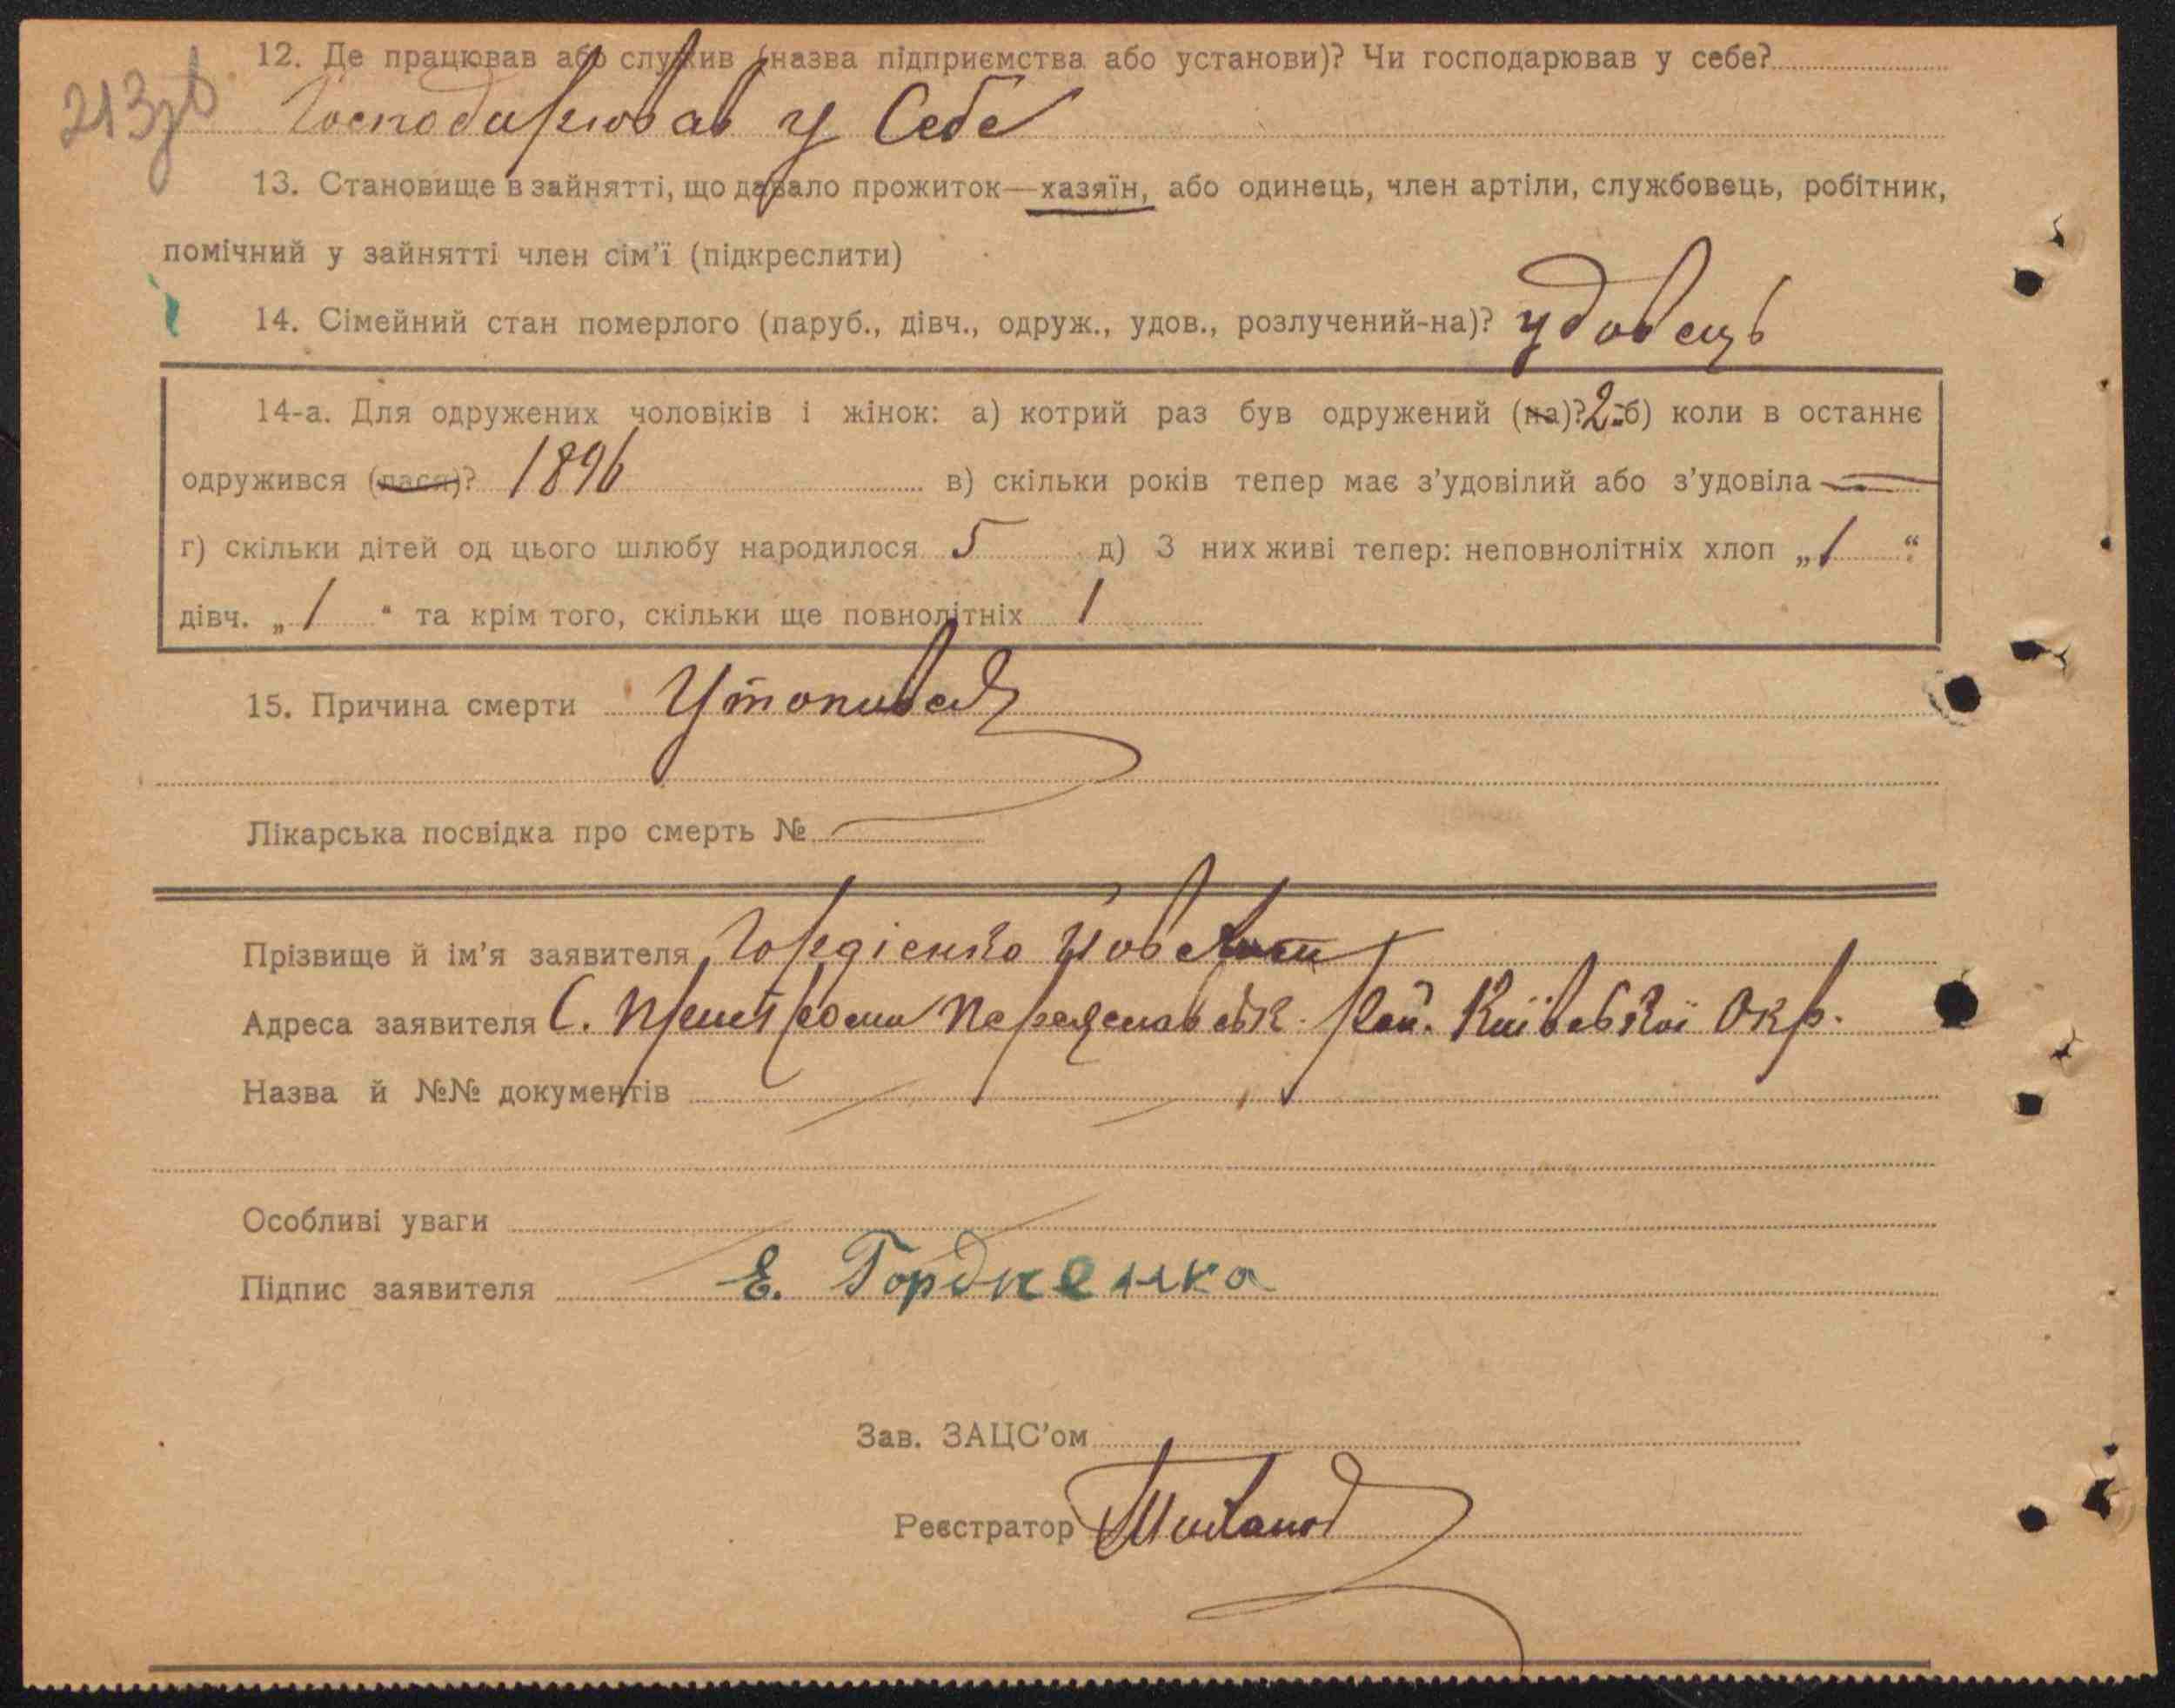 213зв
12. Де працював або служив (назва підприємства або установи)? Чи господарював у себе?
Господарював у Себе
13. Становище в зайнятті, що давало прожиток—хазяїн, або одинець, член артіли, службовець, робітник,
помічний у зайнятті член сім'ї (підкреслити)
14. Сімейний стан померлого (паруб., дівч., одруж., удов., розлучений-на)? удовець
14-а. Для одружених чоловіків і жінок: а) котрий раз був одружений (на)? 2 б) коли в останнє
одружився (лася)? 1896 в) скільки років тепер має з'удовілий або з'удовіла —
г) скільки дітей од цього шлюбу народилося 5 д) З них живі тепер: неповнолітніх хлоп „1“
дівч. „1“ та крім того, скільки ще повнолітніх 1
15. Причина смерти Утопився
Лікарська посвідка про смерть № —
Прізвище й ім'я заявителя Гордієнко
Адреса заявителя С. Пристроми Переяславськ. Рай. Київської Окр.
Назва й №№ документів
Особливі уваги
Підпис заявителя Е. Гордиенка
Зав. ЗАЦС'ом
Реєстратор